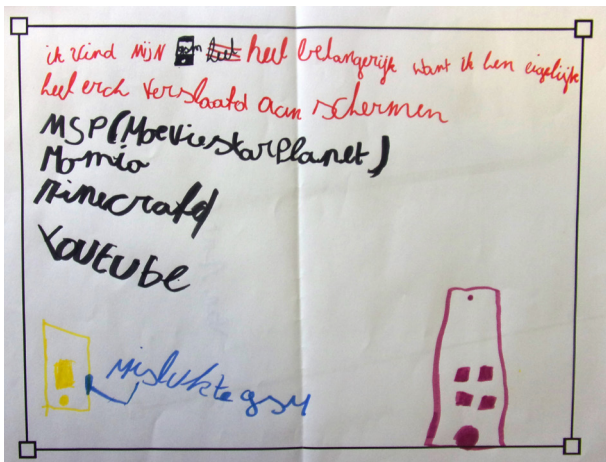 ik vind mijn gsm heel belangerijk want ik ben eigelijk
heel erch verslaafd aan schermen
MSP (MoevieStarPlanet)
Momio
Minecrafd
Youtube
Mislukte gsm